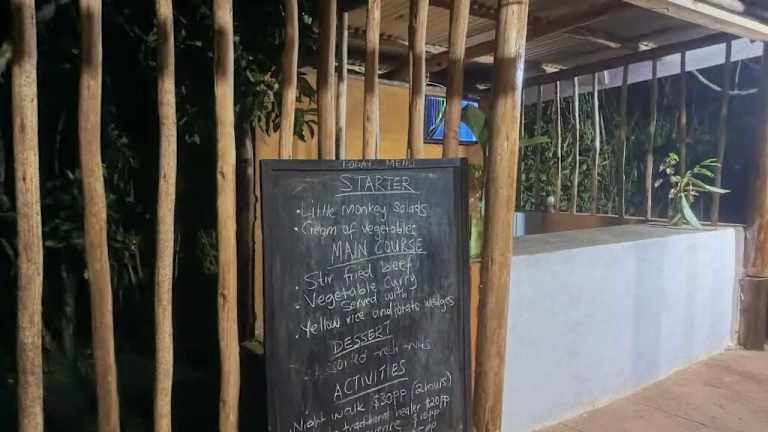 TODAYS MENU
STARTER
• Little monkey Salads
• Cream of vegetables
MAIN COURSE
• Stir fried beef
• Vegetable Curry
Served with
• Yellow rice and Potato wedges
DESSERT
ACTIVITIES
Night walk $30PP (2 hours)
traditional healer $20PP